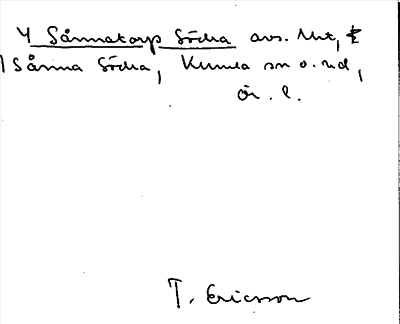 Sånnatorp Södra avs. Mt,
Sånna Södra, Kumla sn o. hd,
Ör. l.
T. Ericsson